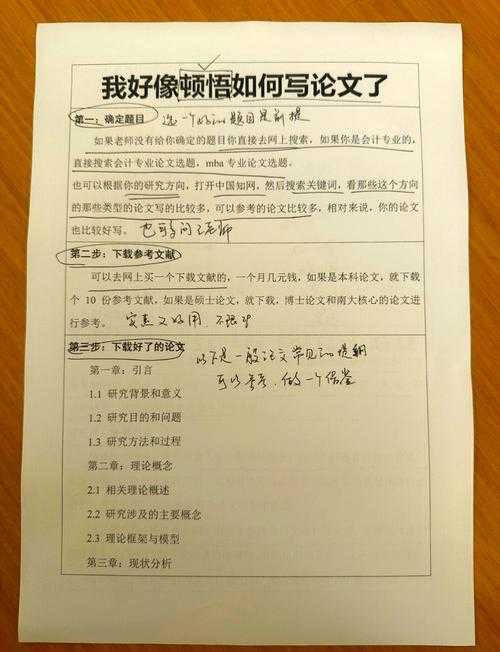 我好像顿悟如何写论文了
第一：确定题目 选一个好的题目是前提
如果老师没有给你确定的题目你直接去网上搜索，如果你是会计专业的，
直接搜索会计专业论文选题，mba 专业论文选题。
也可以根据你的研究方向，打开中国知网，然后搜索关键词，看那些这个方向
的那些类型的论文写的比较多，可以参考的论文比较多，相对来说，你的论文
也比较好写。 也可问问老师
第二步：下载参考文献
可以去网上买一个下载文献的，一个月几元钱，如果是本科论文，就下载
个 10 份参考文献，如果是硕士论文，就下载，博士论文和南大核心的论文进
行参考。 实惠又好用
第三步：下载好了的论文 以下是一般论文常见的提纲
第一章：引言 可以参考，做一个借鉴
1.1 研究背景和意义
1.2 研究目的和问题
1.3 研究方法和过程
第二章：理论概念
2.1 相关理论概述
2.2 研究涉及的主要概念
2.3 理论框架与模型
第三章：现状分析